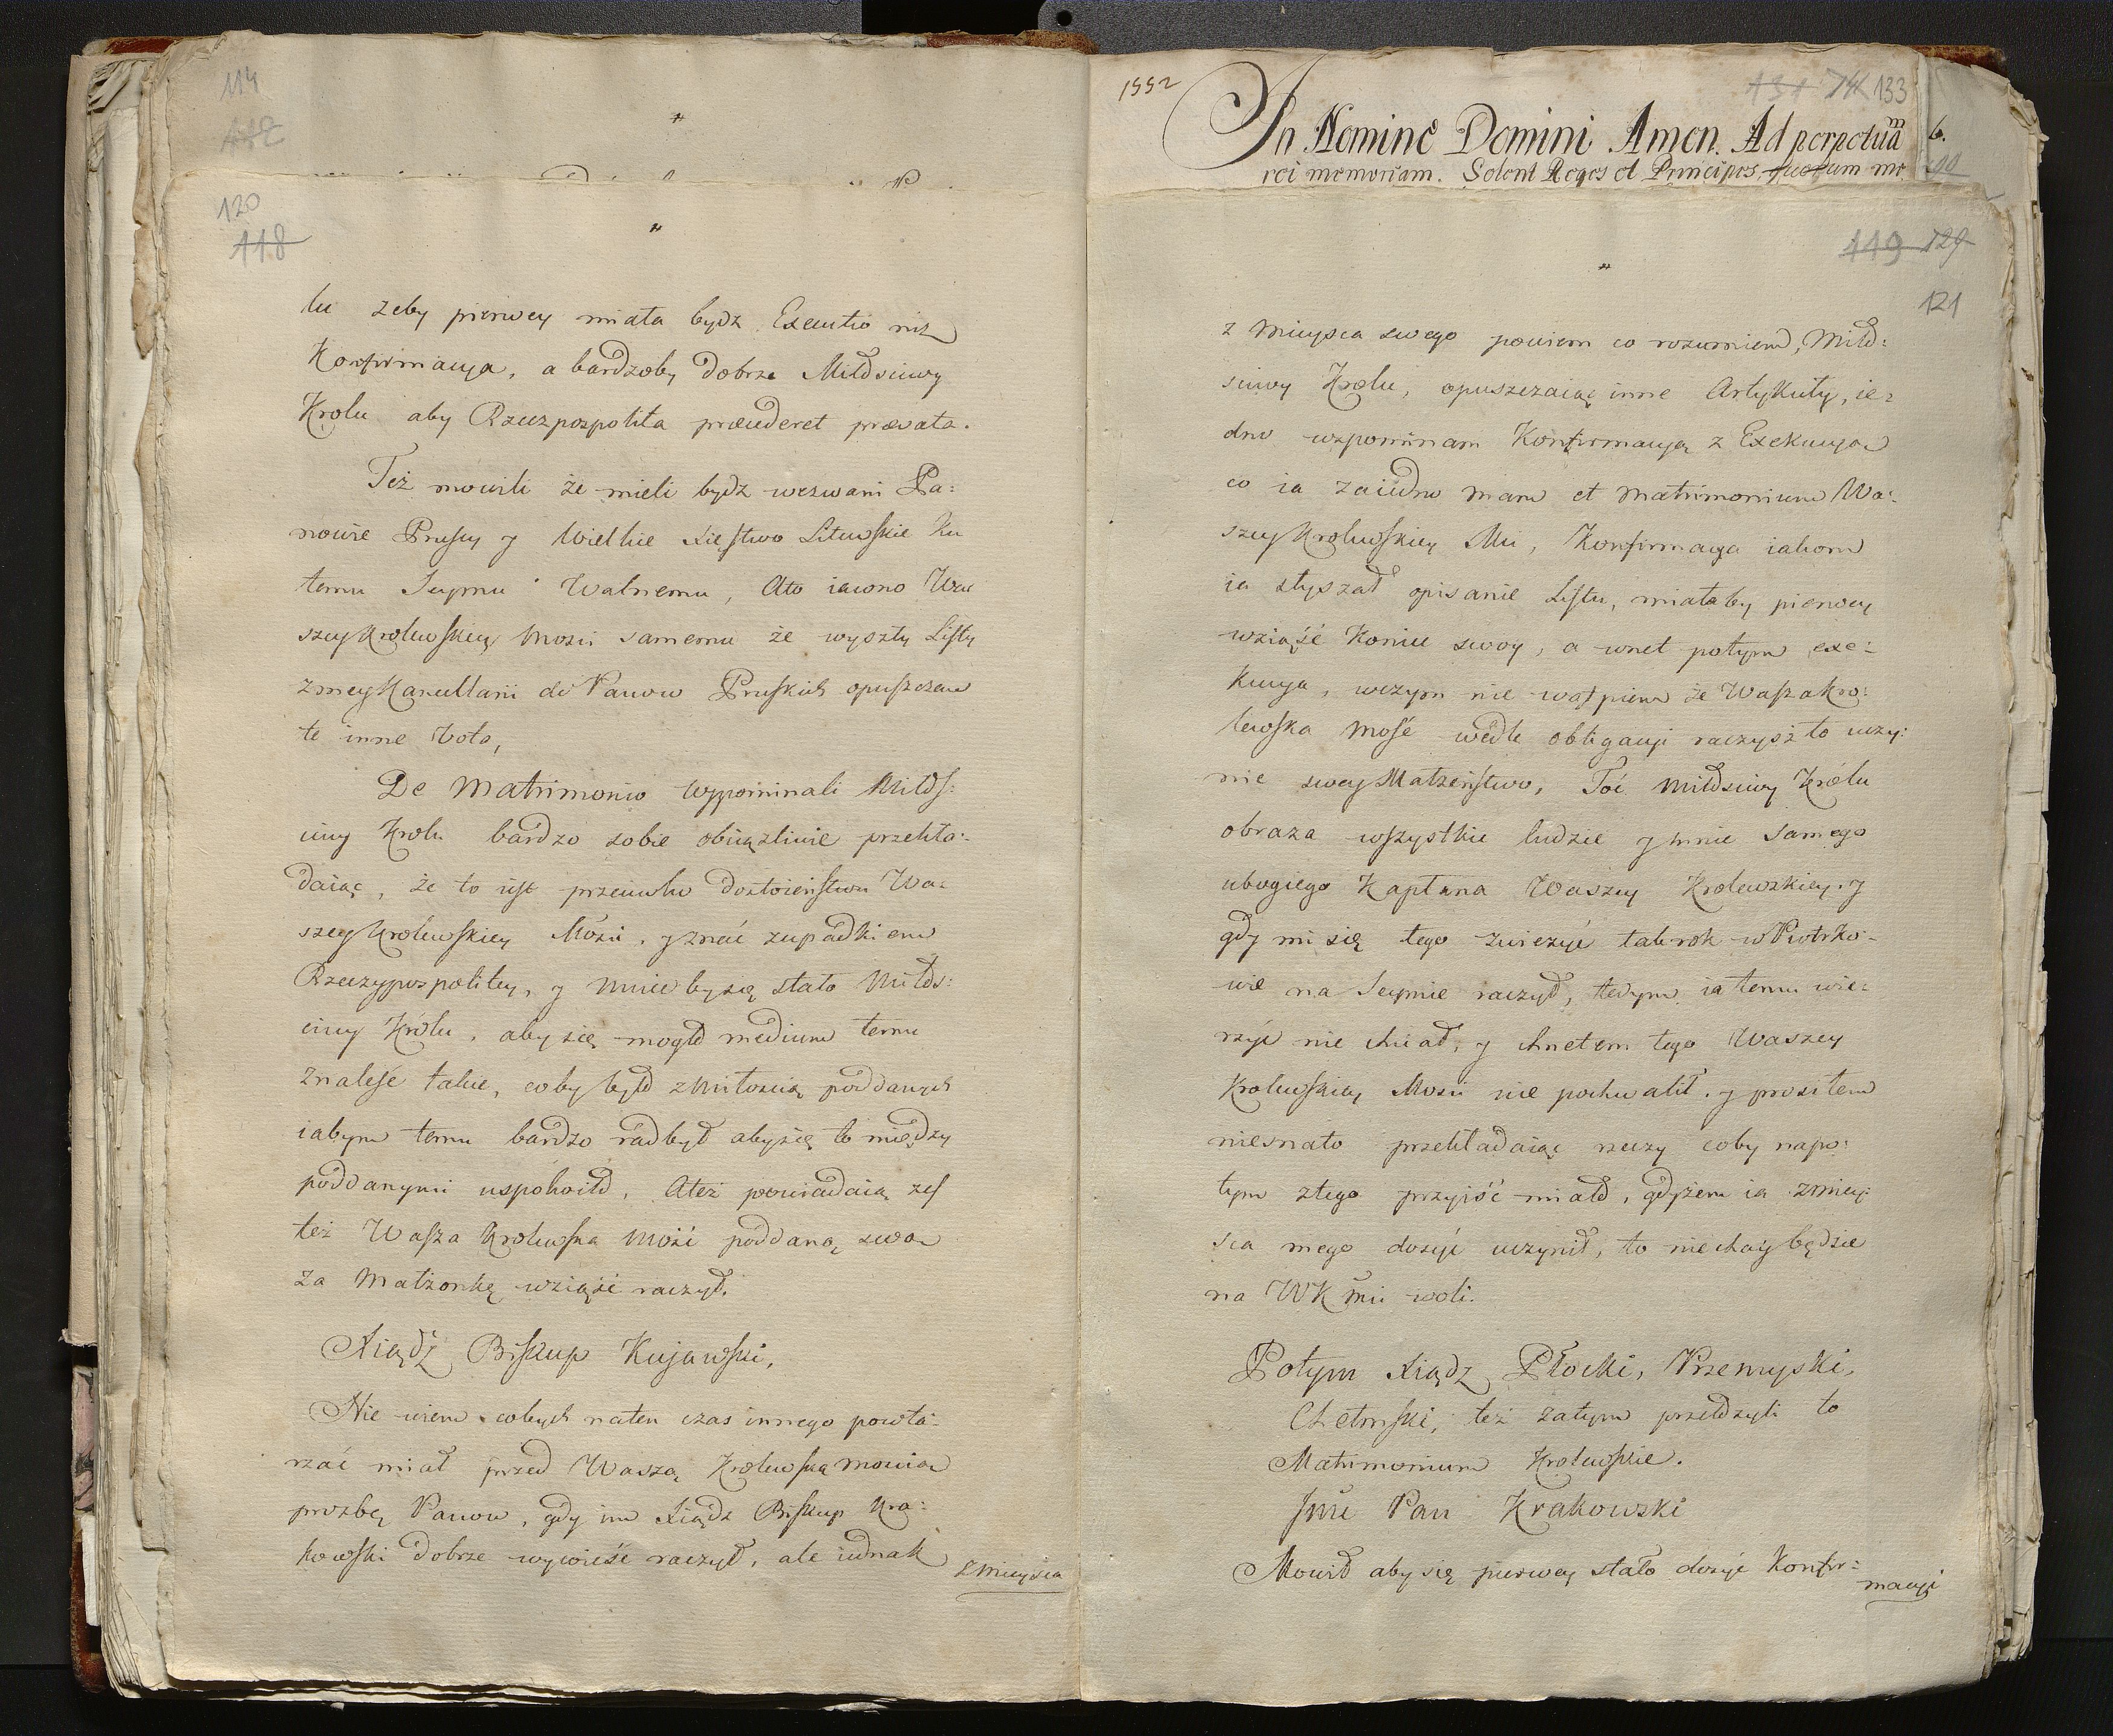 114
112
120
118
lu żeby pierwey miała bydz Executio niż
Konfirmacya, a bardzoby dobrze Miłościwy
Krolu aby Rzeczpospolita præcederet prævata.
Też mowili że mieli bydz wezwani Pa:
nowie Pruscy y Wielkie Xięstwo Litewskie ku
temu Seymu Walnemu, Ato iawno Wa
szey Krolewskiey Mości samemu że wyszły Listy
zmey Kancellarii do Panow Pruskich opuszczam
te inne Vota,
De Matrimonio wspominali Miłoś:
ciwy Krolu bardzo sobie obciążliwie przekła:
daiąc, że to iest przeciwko dostoieństwu Wa:
szey Krolewskiey Mości, y znać zupadkiem
Rzeczypospolitey, y mnie by się stało Miłoś:
ciwy Królu, aby się mogło medium temu
znaleść takie, coby było z miłością poddanych
iabym temu bardzo rad był aby się to między
poddanymi uspokoiło, Ateż powiadaią żeś
też Wasza Krolewska Mość poddaną swą
za Małżonkę wziąść raczył.
Xiądz Biskup Kujawski,
Nie wiem cobych naten czas innego powta:
rzać miał przed Waszą Krolewską Mością
prozbę Panow, gdy im Xiądz Biskup Kra:
kowski dobrze wywieść raczył, ale iednak
z mieysca
1552
131 74 133
In Nomine Domini Amen. Ad perpetuam
rei memoriam. Solent Reges et Principes, quorum me
6.
90
119 129
121
z mieysca swego powiem co rozumiem, Miło:
sciwy Krolu, opuszczaiąc inne Artykuły, ie:
dno wspominam Konfirmacyą z Exekucyą
co ia zaiedno mam et matrimonium Wa:
szey Krolewskiey Mci, Konfirmacya iakom
ia słyszał opisanie Listu, miałaby pierwey
wziąść koniec swoy, a wnet potym exe:
kucya, wczym nie wątpiem że Wasza Kro:
lewska Mość wedle obligacyi raczysz to uczy:
nić swey Małżeństwo, Toć Miłościwy Królu
obraża wszystkie ludzie y mnie samego
ubogiego Kapłana Waszey Krolewskiey. y
gdy mi się tego zwierzyć tak rok w Piotrko-
wie na Seymie raczył, tedym ia temu wie:
rzyć nie chciał, y chnetem tego Waszey
Krolewskiey Mości nie pochwalił. y prosiłem
przekładaiąc rzeczy coby napo:
tym złego przyiść miało, gdyżem ia z miey:
sca mego dosyć uczynił, to niechay będzie
na WKmci woli.
Potym Xiądz Płocki, Przemyski,
Chełmski, też zatym przełożyli to
Matrimonium Krolewskie.
Jmć Pan Krakowski
Mowił aby się pierwey stało dosyć Konfir:
macyi